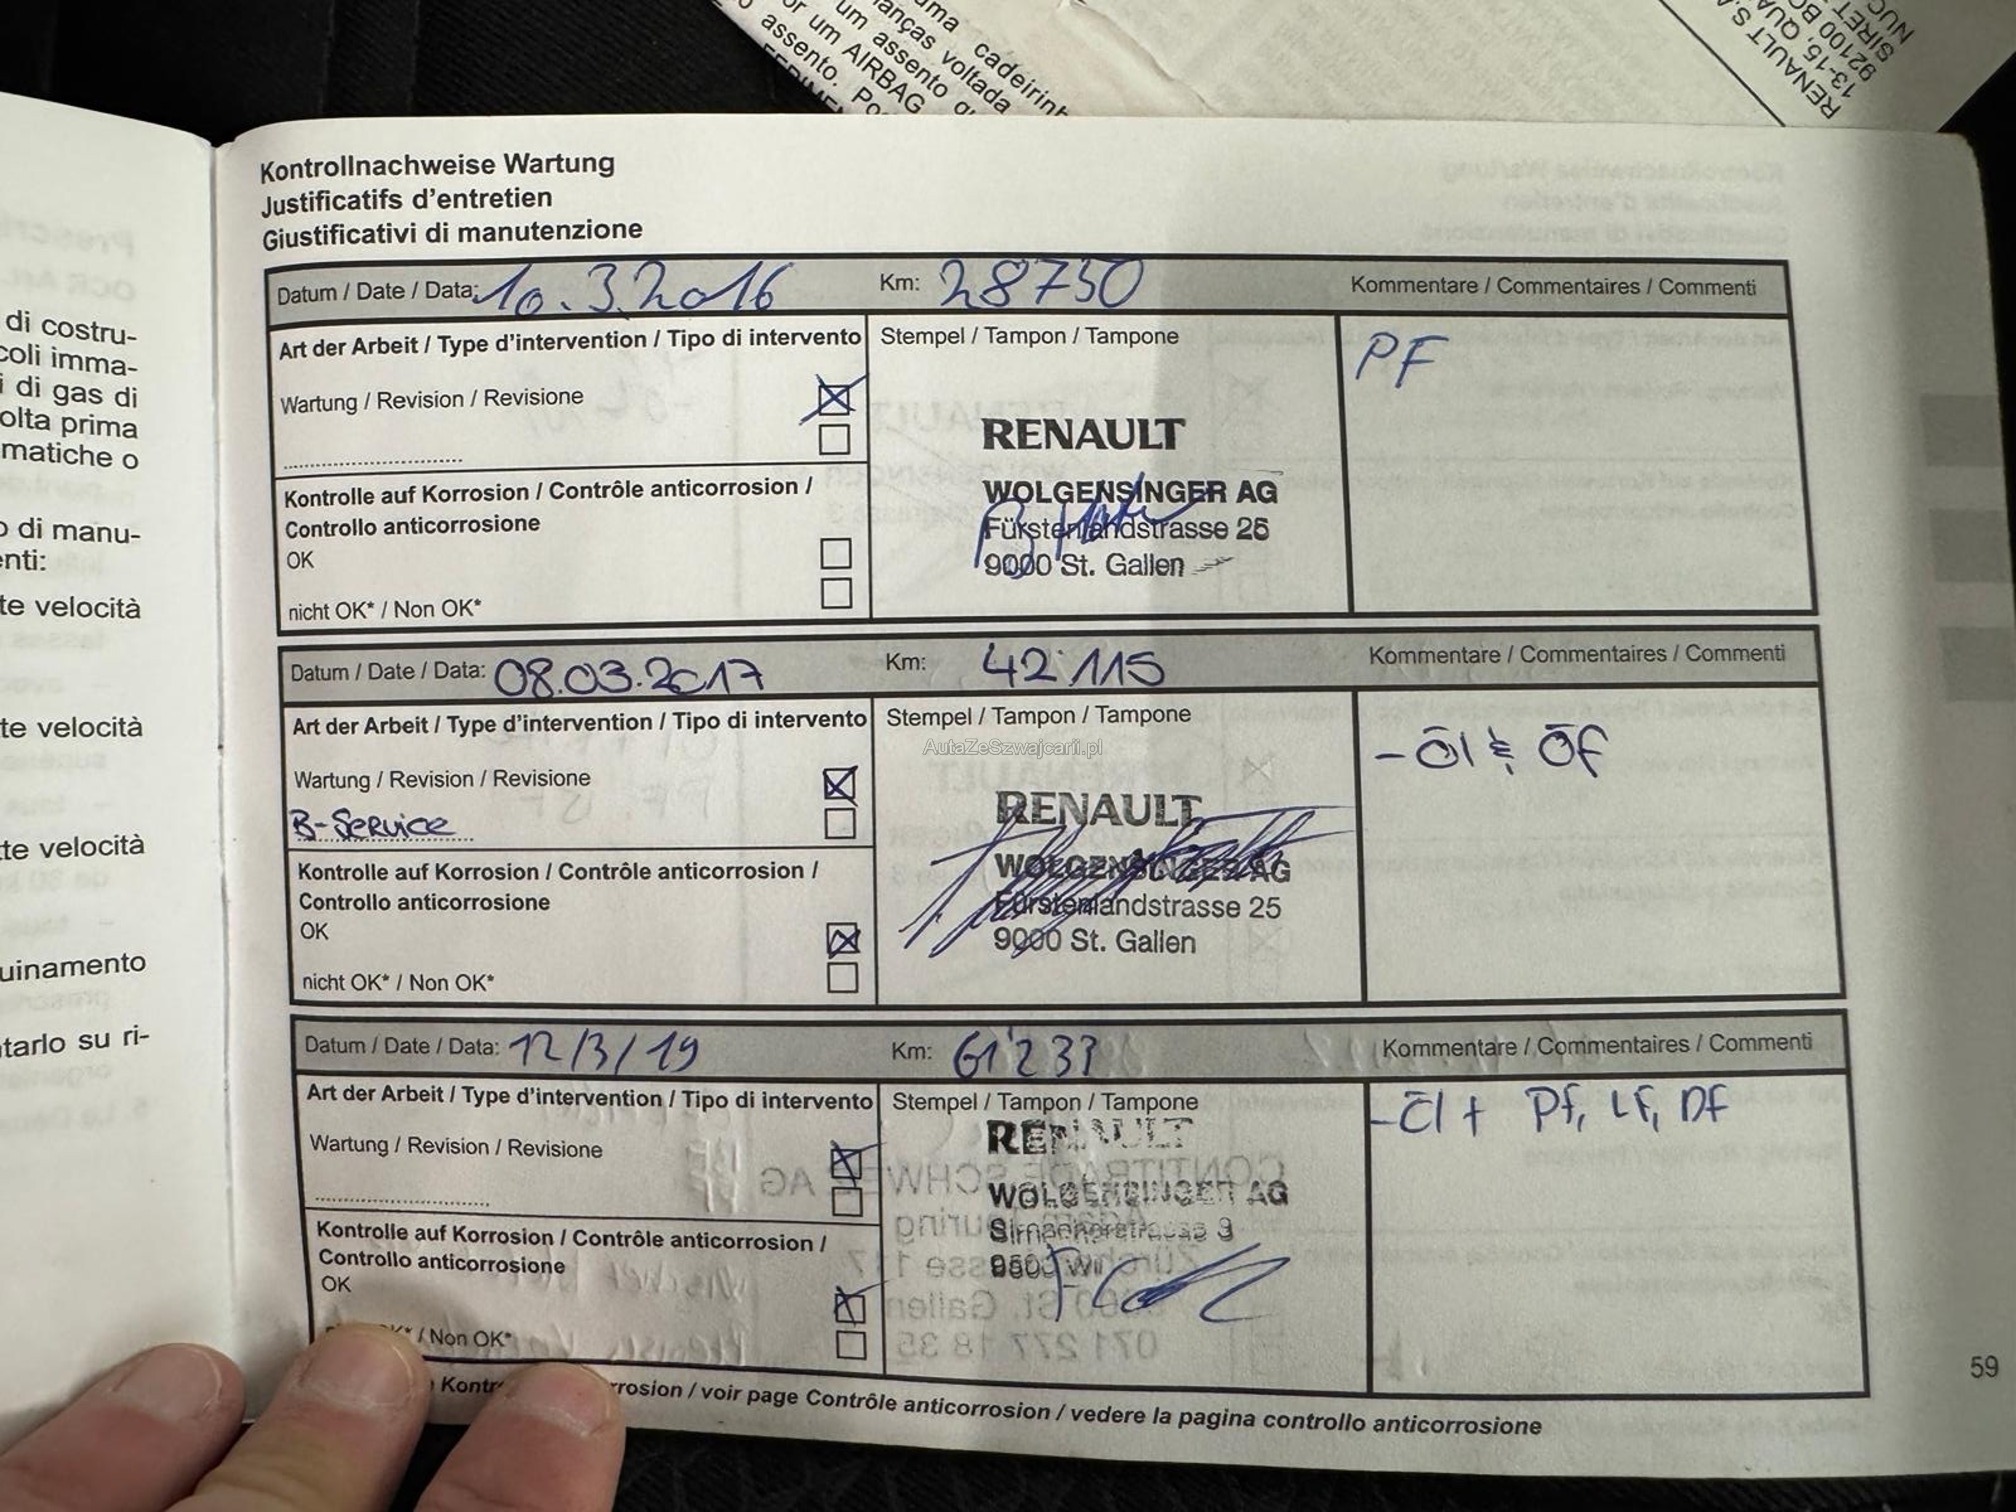 uma cadeirinh
anças voltada
um assento q
or um AIRBAG
assento. Po
RENAULT S.A
13-15, QUA
92100 BO
SIRET
NUC
Kontrollnachweise Wartung
Justificatifs d'entretien
Giustificativi di manutenzione
Datum / Date / Data: 10.3.2016 Km: 28750 Kommentare / Commentaires / Commenti
Art der Arbeit / Type d'intervention / Tipo di intervento Stempel / Tampon / Tampone PF
Wartung / Revision / Revisione
RENAULT
Kontrolle auf Korrosion / Contrôle anticorrosion / WOLGENSINGER AG
Controllo anticorrosione Fürstenlandstrasse 25
OK 9000 St. Gallen
nicht OK* / Non OK*
Datum / Date / Data: 08.03.2017 Km: 42'115 Kommentare / Commentaires / Commenti
Art der Arbeit / Type d'intervention / Tipo di intervento Stempel / Tampon / Tampone - Öl & Öf
AutaZeSzwajcarii.pl
Wartung / Revision / Revisione
RENAULT
B-Service
Kontrolle auf Korrosion / Contrôle anticorrosion / WOLGENSINGER AG
Controllo anticorrosione Fürstenlandstrasse 25
OK 9000 St. Gallen
nicht OK* / Non OK*
Datum / Date / Data: 12/3/19 Km: 61'233 Kommentare / Commentaires / Commenti
Art der Arbeit / Type d'intervention / Tipo di intervento Stempel / Tampon / Tampone - Öl + Pf, LF, Df
RENAULT
Wartung / Revision / Revisione
WOLGENSINGER AG
Kontrolle auf Korrosion / Contrôle anticorrosion /
Controllo anticorrosione
OK
/ Non OK*
Kontr rosion / voir page Contrôle anticorrosion / vedere la pagina controllo anticorrosione
59
di costru-
coli imma-
i di gas di
olta prima
matiche o
o di manu-
enti:
te velocità
te velocità
te velocità
uinamento
tarlo su ri-